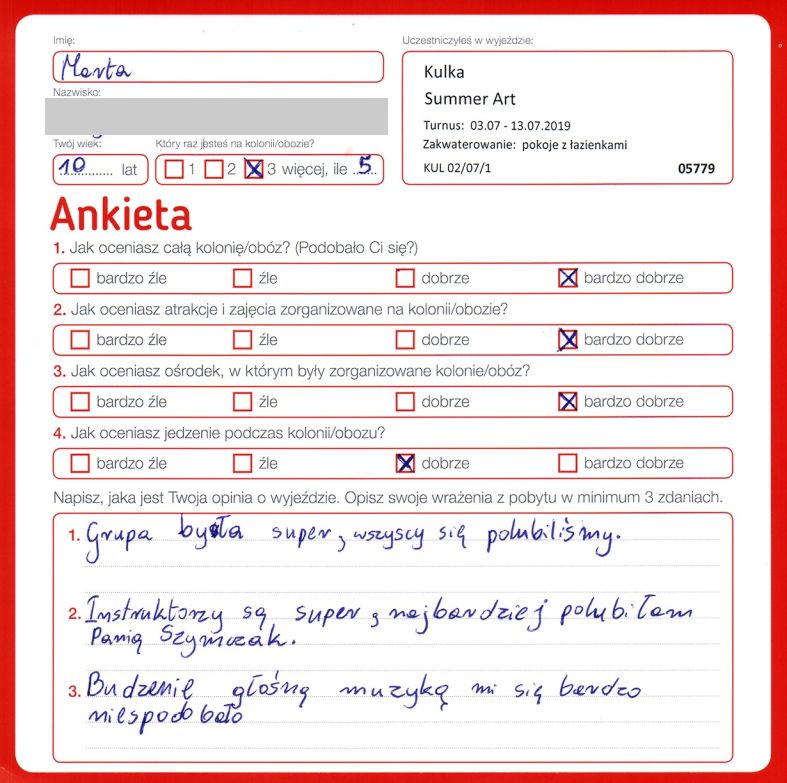 Imię:
Marta
Nazwisko:
Twój wiek:
10 lat
Który raz jesteś na kolonii/obozie?
1 2 3 więcej, ile 5
Uczestniczyłeś w wyjeździe:
Kulka
Summer Art
Turnus: 03.07 - 13.07.2019
Zakwaterowanie: pokoje z łazienkami
KUL 02/07/1 05779
Ankieta
1. Jak oceniasz całą kolonię/obóz? (Podobało Ci się?)
bardzo źle źle dobrze bardzo dobrze
2. Jak oceniasz atrakcje i zajęcia zorganizowane na kolonii/obozie?
bardzo źle źle dobrze bardzo dobrze
3. Jak oceniasz ośrodek, w którym były zorganizowane kolonie/obóz?
bardzo źle źle dobrze bardzo dobrze
4. Jak oceniasz jedzenie podczas kolonii/obozu?
bardzo źle źle dobrze bardzo dobrze
Napisz, jaka jest Twoja opinia o wyjeździe. Opisz swoje wrażenia z pobytu w minimum 3 zdaniach.
1. Grupa była super, wszyscy się polubiliśmy.
2. Instruktorzy są super, najbardziej polubiłam
Panią Szymczak.
3. Budzenie głośną muzyką mi się bardzo
niespodobało